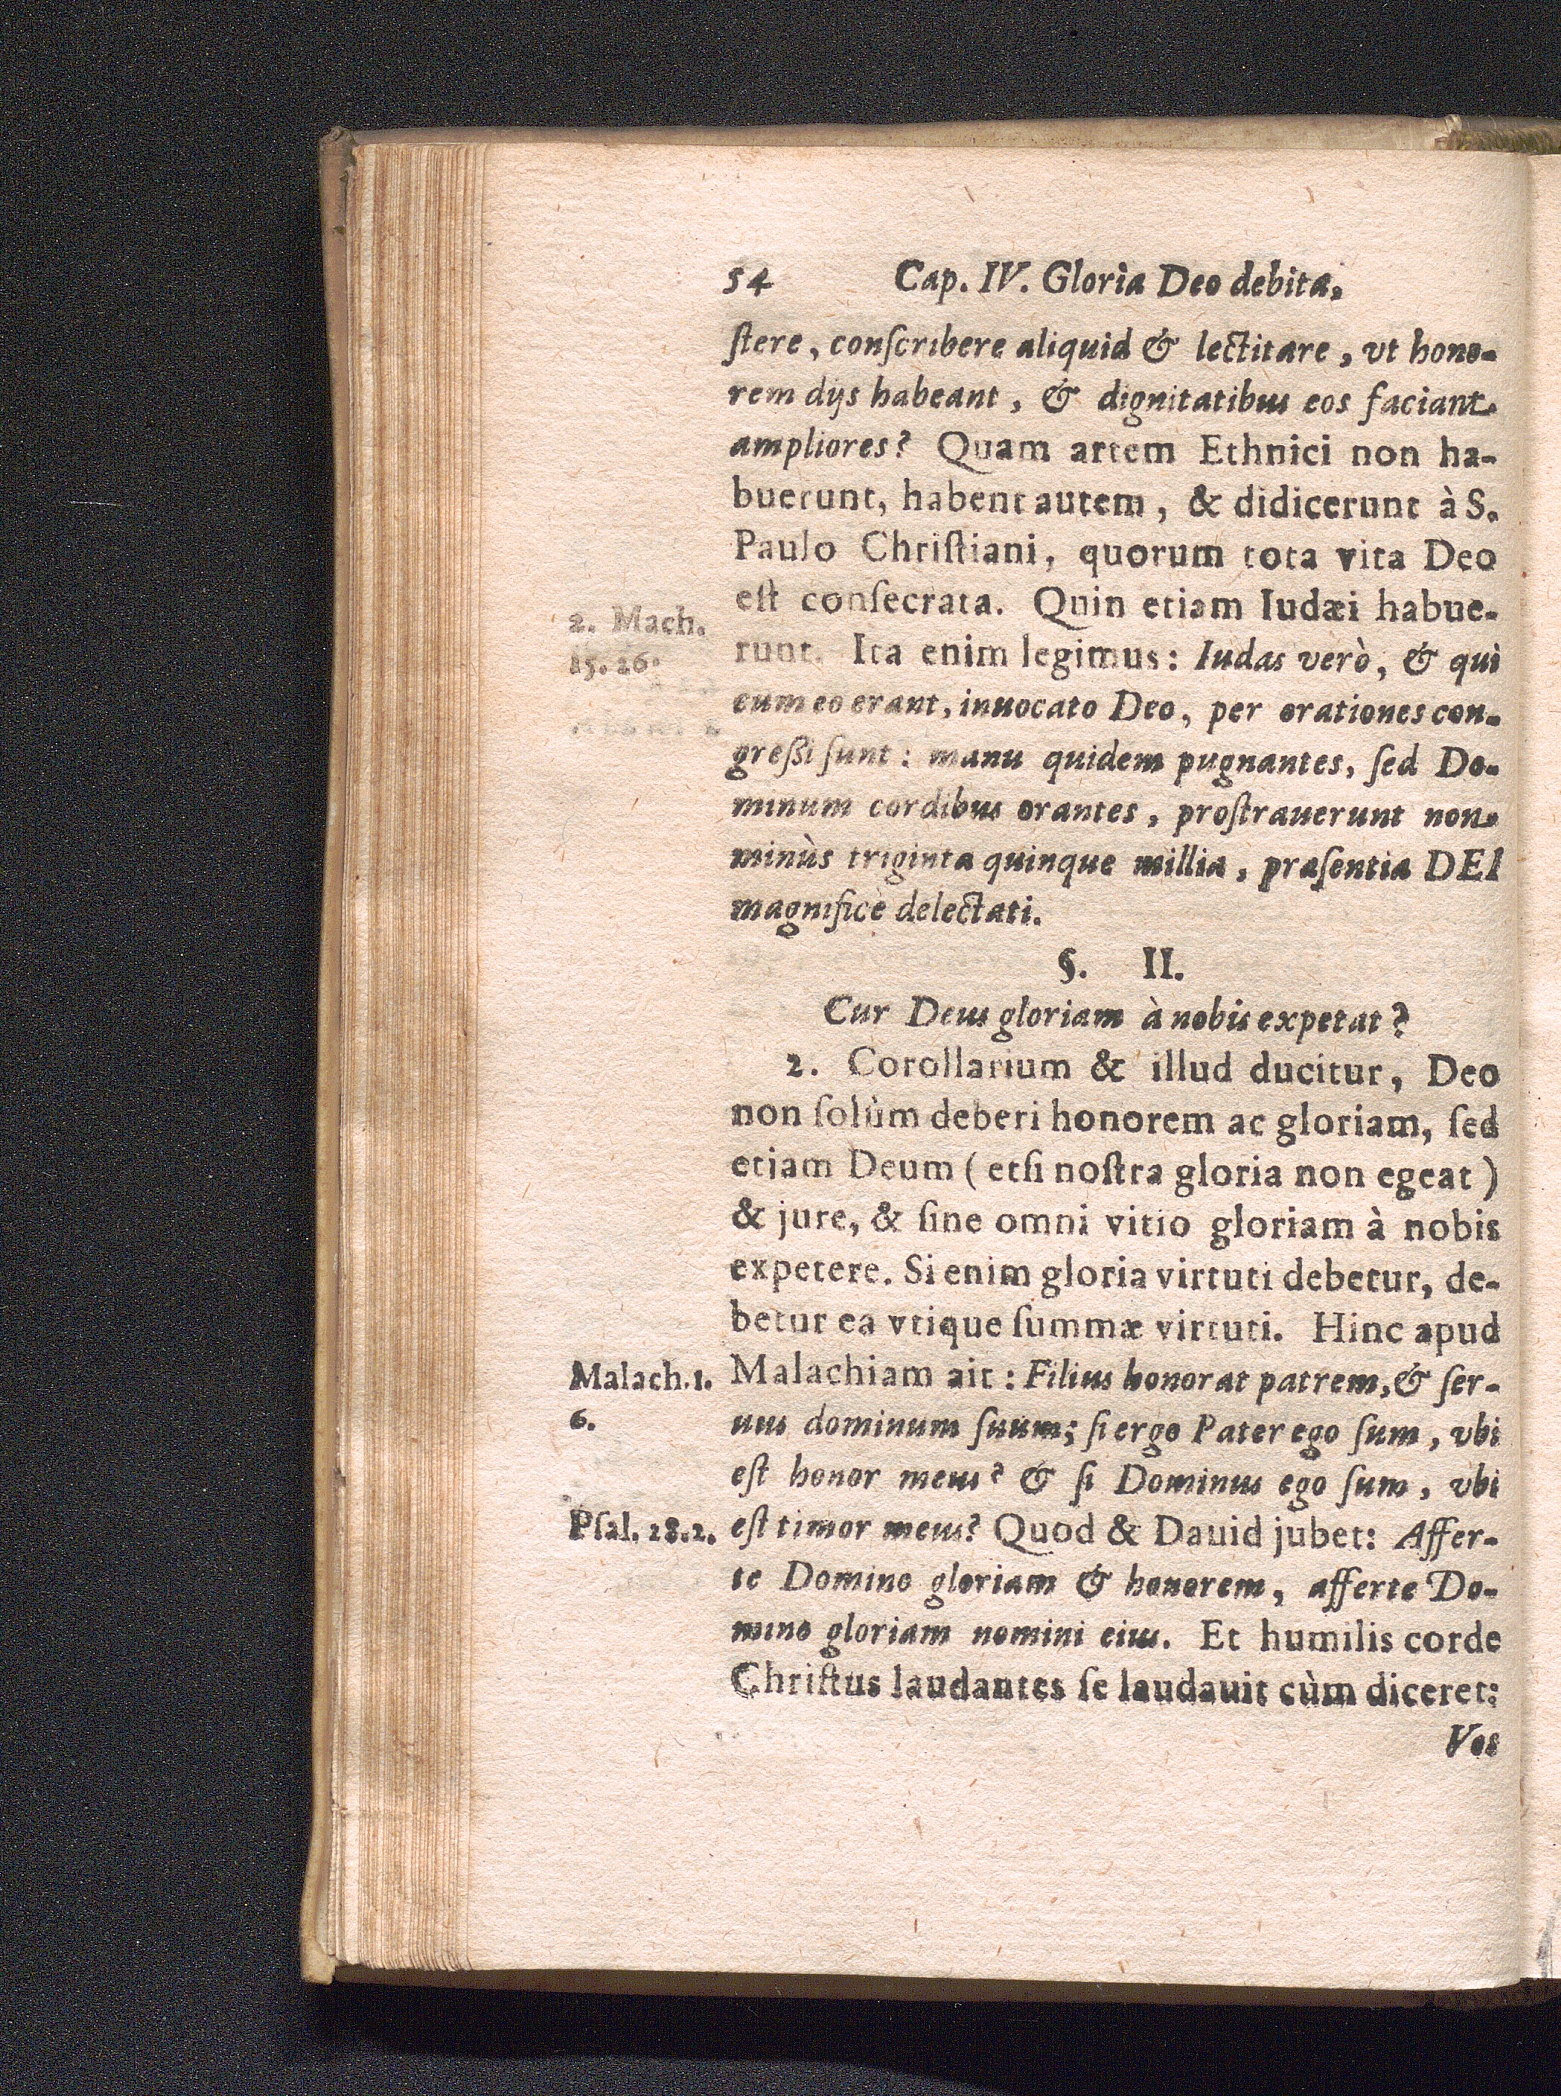 54 Cap. IV. Gloria Deo debita,
ſtere, conſcribere aliquid & lectitare, vt hono-
rem dijs habeant, & dignitatibus eos faciant
ampliores? Quam artem Ethnici non ha-
buerunt, habent autem, & didicerunt à S.
Paulo Chriſtiani, quorum tota vita Deo
eſt conſecrata. Quin etiam Iudæi habue-
2. Mach.
15. 26.
runt. Ita enim legimus: Iudas verò, & qui
cum eo erant, inuocato Deo, per orationes con-
greßi ſunt: manu quidem pugnantes, ſed Do-
minum cordibus orantes, proſtrauerunt non
minùs triginta quinque millia, præſentia DEI
magnificè delectati.
§. II.
Cur Deus gloriam à nobis expetat?
2. Corollarium & illud ducitur, Deo
non ſolùm deberi honorem ac gloriam, ſed
etiam Deum (etſi noſtra gloria non egeat)
& jure, & ſine omni vitio gloriam à nobis
expetere. Si enim gloria virtuti debetur, de-
betur ea vtique ſummæ virtuti. Hinc apud
Malach. 1.
6.
Malachiam ait: Filius honorat patrem, & ſer-
uus dominum ſuum; ſi ergo Pater ego ſum, vbi
eſt honor meus? & ſi Dominus ego ſum, vbi
Pſal. 28. 2.
eſt timor meus? Quod & Dauid jubet: Affer-
te Domino gloriam & honorem, afferte Do-
mino gloriam nomini eius. Et humilis corde
Chriſtus laudantes ſe laudauit cùm diceret:
Vos